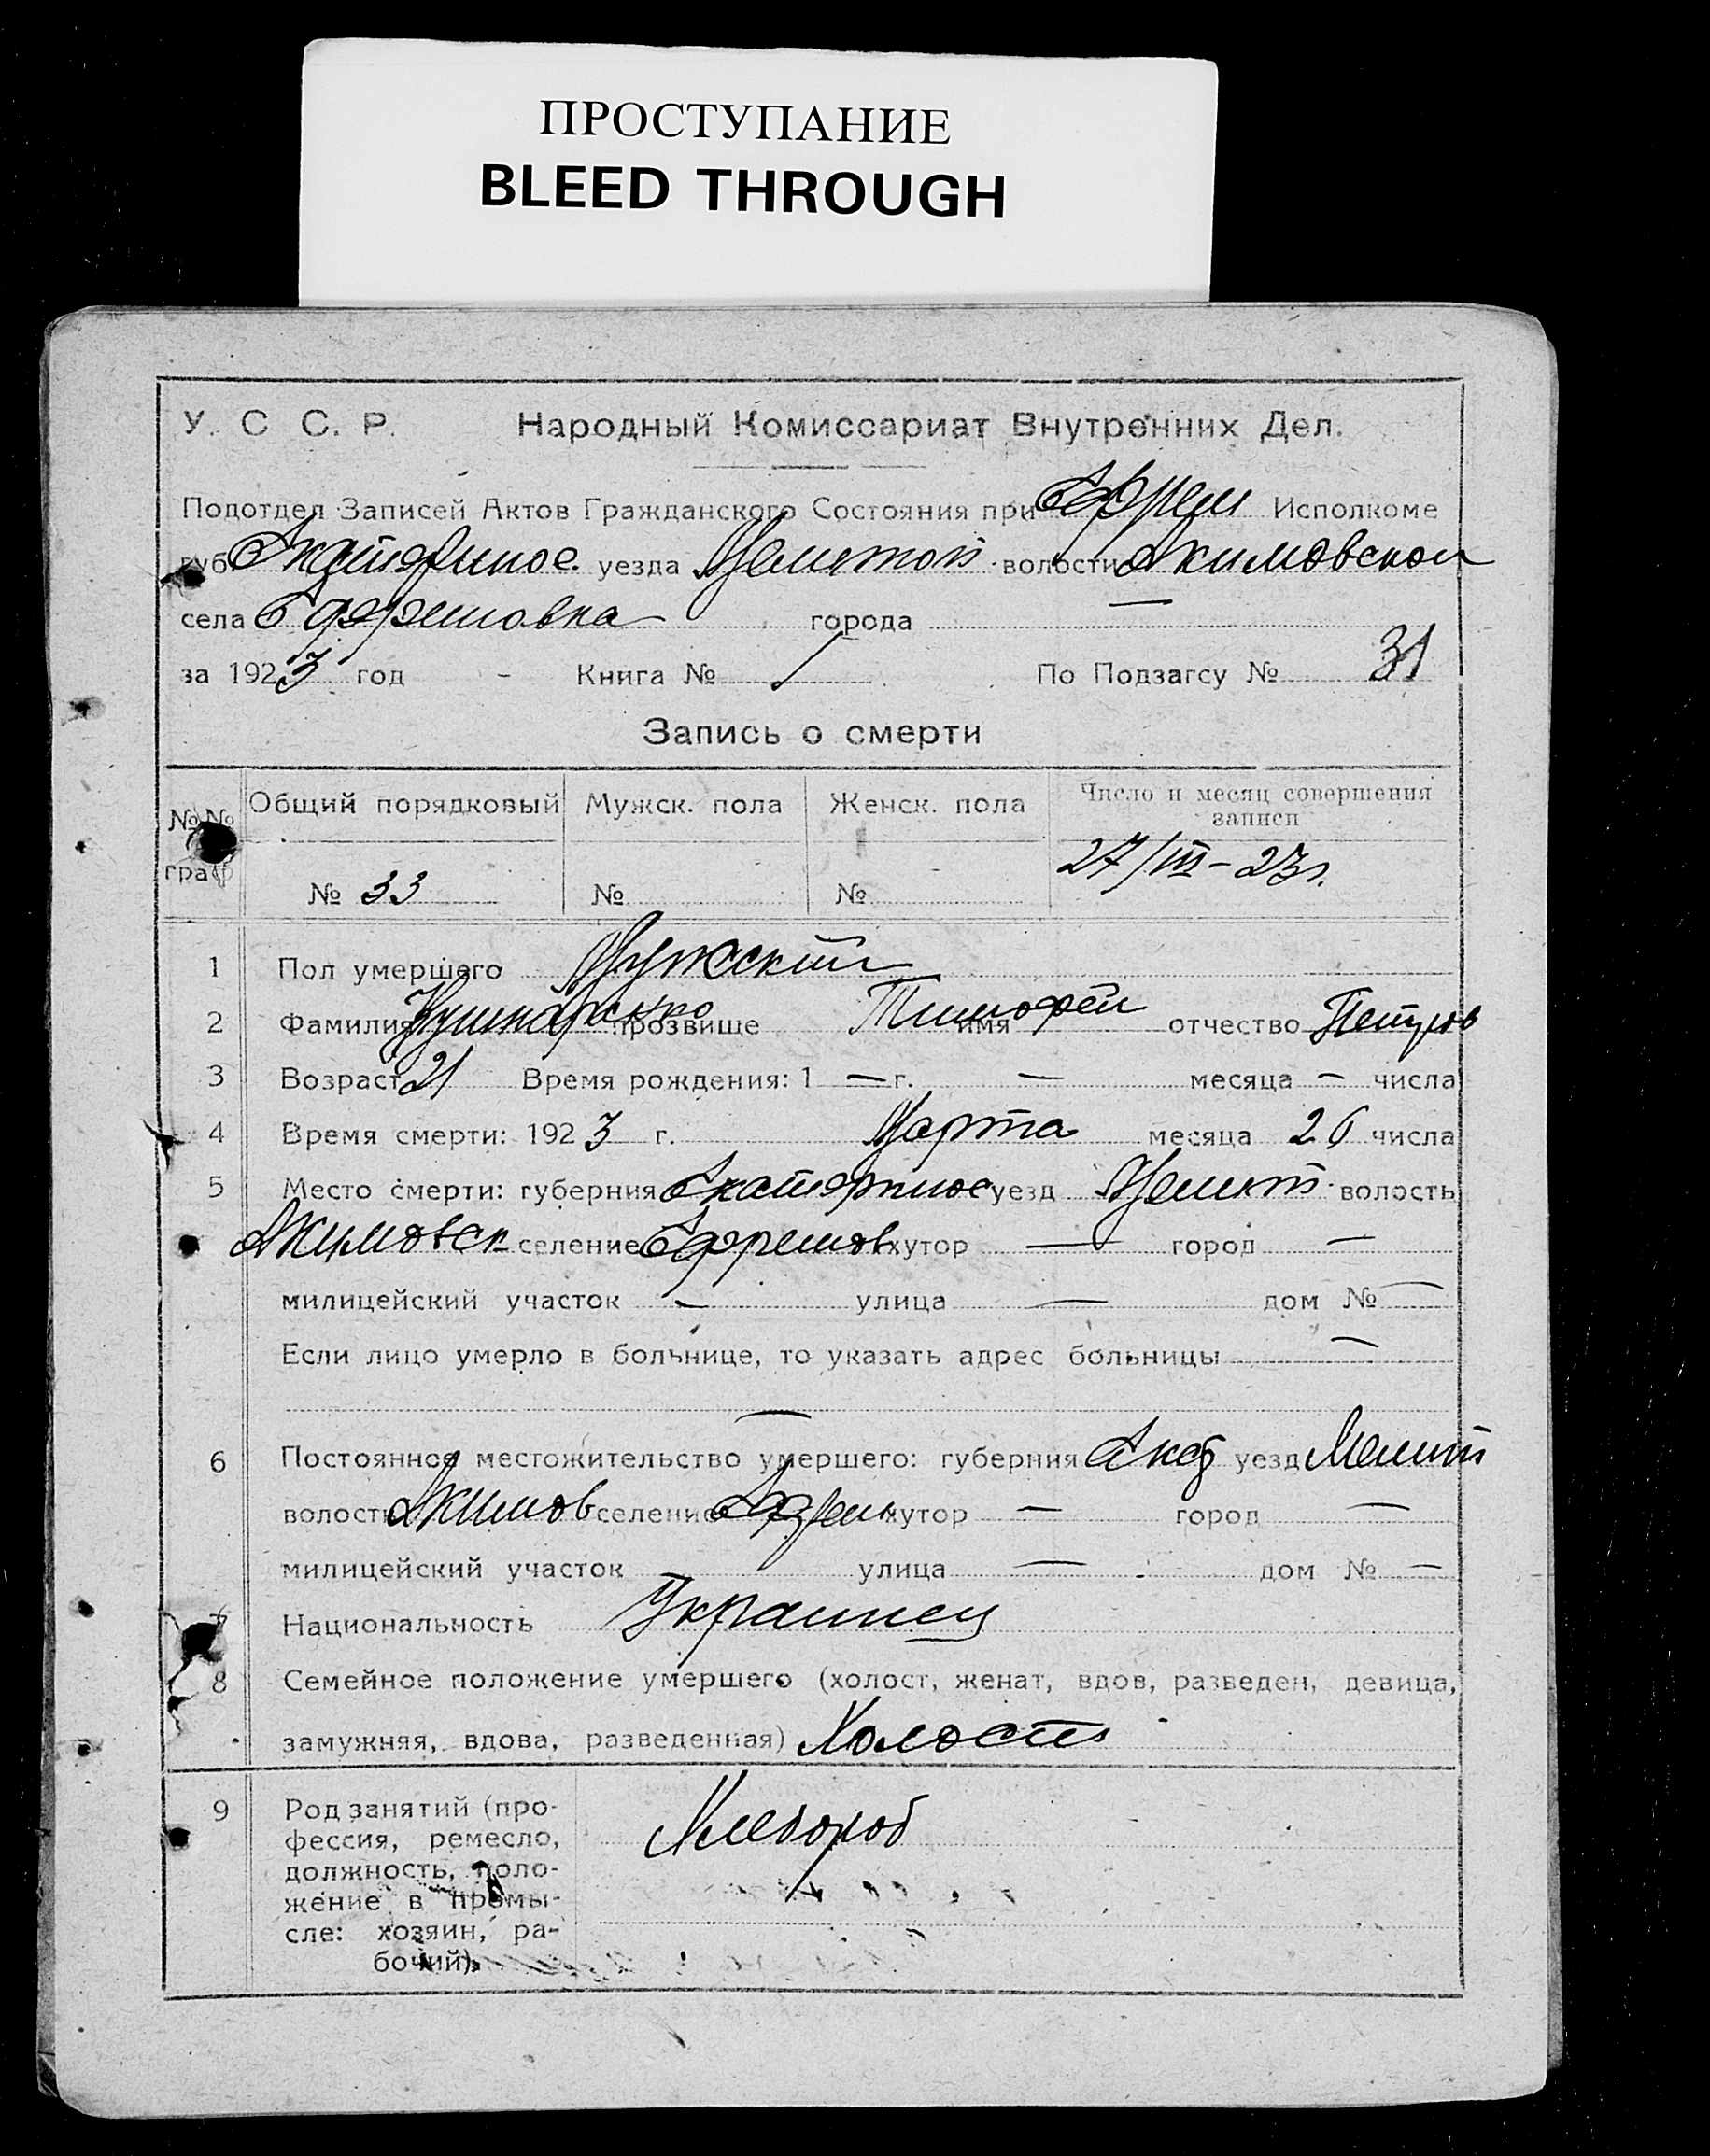 ПРОСТУПАНИЕ
BLEED THROUGH
У. С С. Р. Народный Комиссариат Внутренних Дел.
Подотдел Записей Актов Гражданского Состояния при Ефрем Исполкоме
губ Екатеринос. уезда Мелитоп. волости Акимовской
села Ефремовка города —
за 1923 год - Книга № 1 По Подзагсу № 31
Запись о смерти
№№ граф Общий порядковый Мужск. пола Женск. пола Число и месяц совершения
записи
№ 33 № № 27/III-23г.
1 Пол умершего Мужский
2 Фамилия прозвище Тимофей имя отчество Петров
3 Возраст 21 Время рождения: 1 — г. — месяца — числа
4 Время смерти: 1923 г. Марта месяца 26 числа
5 Место смерти: губерния Екатеринос уезд Мелит. волость
Акимовск селение Ефремов хутор — город —
милицейский участок — улица — дом № —
Если лицо умерло в больнице, то указать адрес больницы —
—
6 Постоянное местожительство умершего: губерния Екат уезд Мелит
волость Акимов селение Ефрем хутор — город —
милицейский участок улица — дом № —
7 Национальность Украинец
8 Семейное положение умершего (холост, женат, вдов, разведен, девица,
замужняя, вдова, разведенная) Холост
9 Род занятий (про- Хлебороб
фессия, ремесло,
должность, поло-
жение в промы-
сле: хозяин, ра-
бочий).